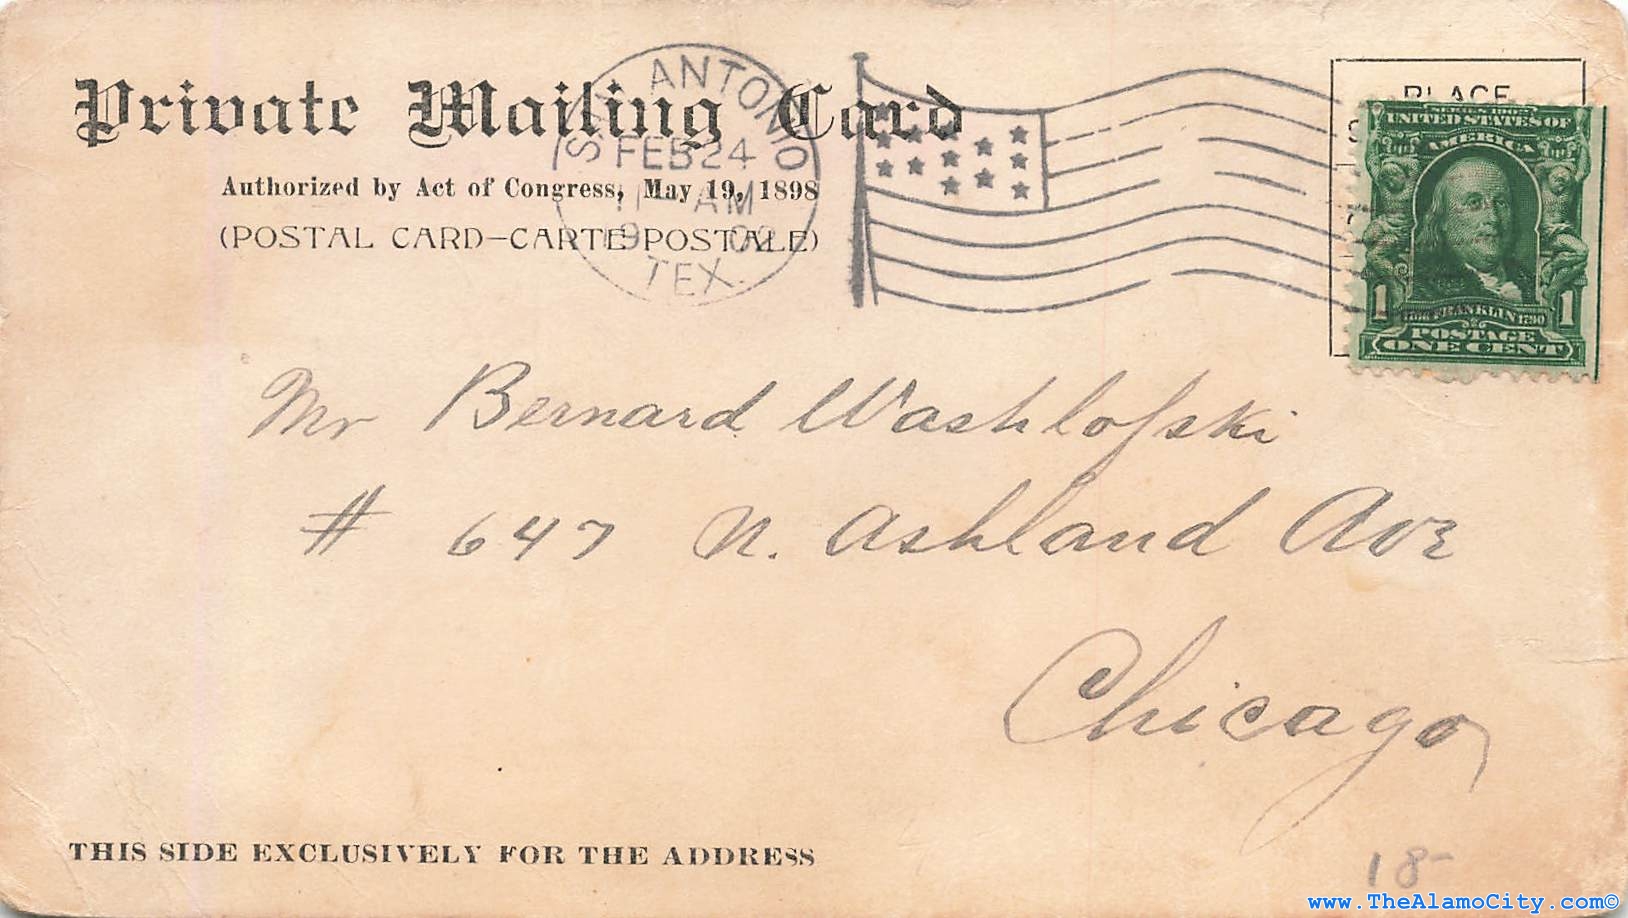 Private Mailing Card
Authorized by Act of Congress, May 19, 1898
(POSTAL CARD–CARTE POSTALE)
SAN ANTONIO
FEB 24
AM
TEX.
PLACE
UNITED STATES OF
AMERICA
1 1
1706 FRANKLIN 1790
POSTAGE
ONE CENT
Mr Bernard Washlofski
# 647 N. Ashland Ave
Chicago
THIS SIDE EXCLUSIVELY FOR THE ADDRESS
18-
www.TheAlamoCity.com©